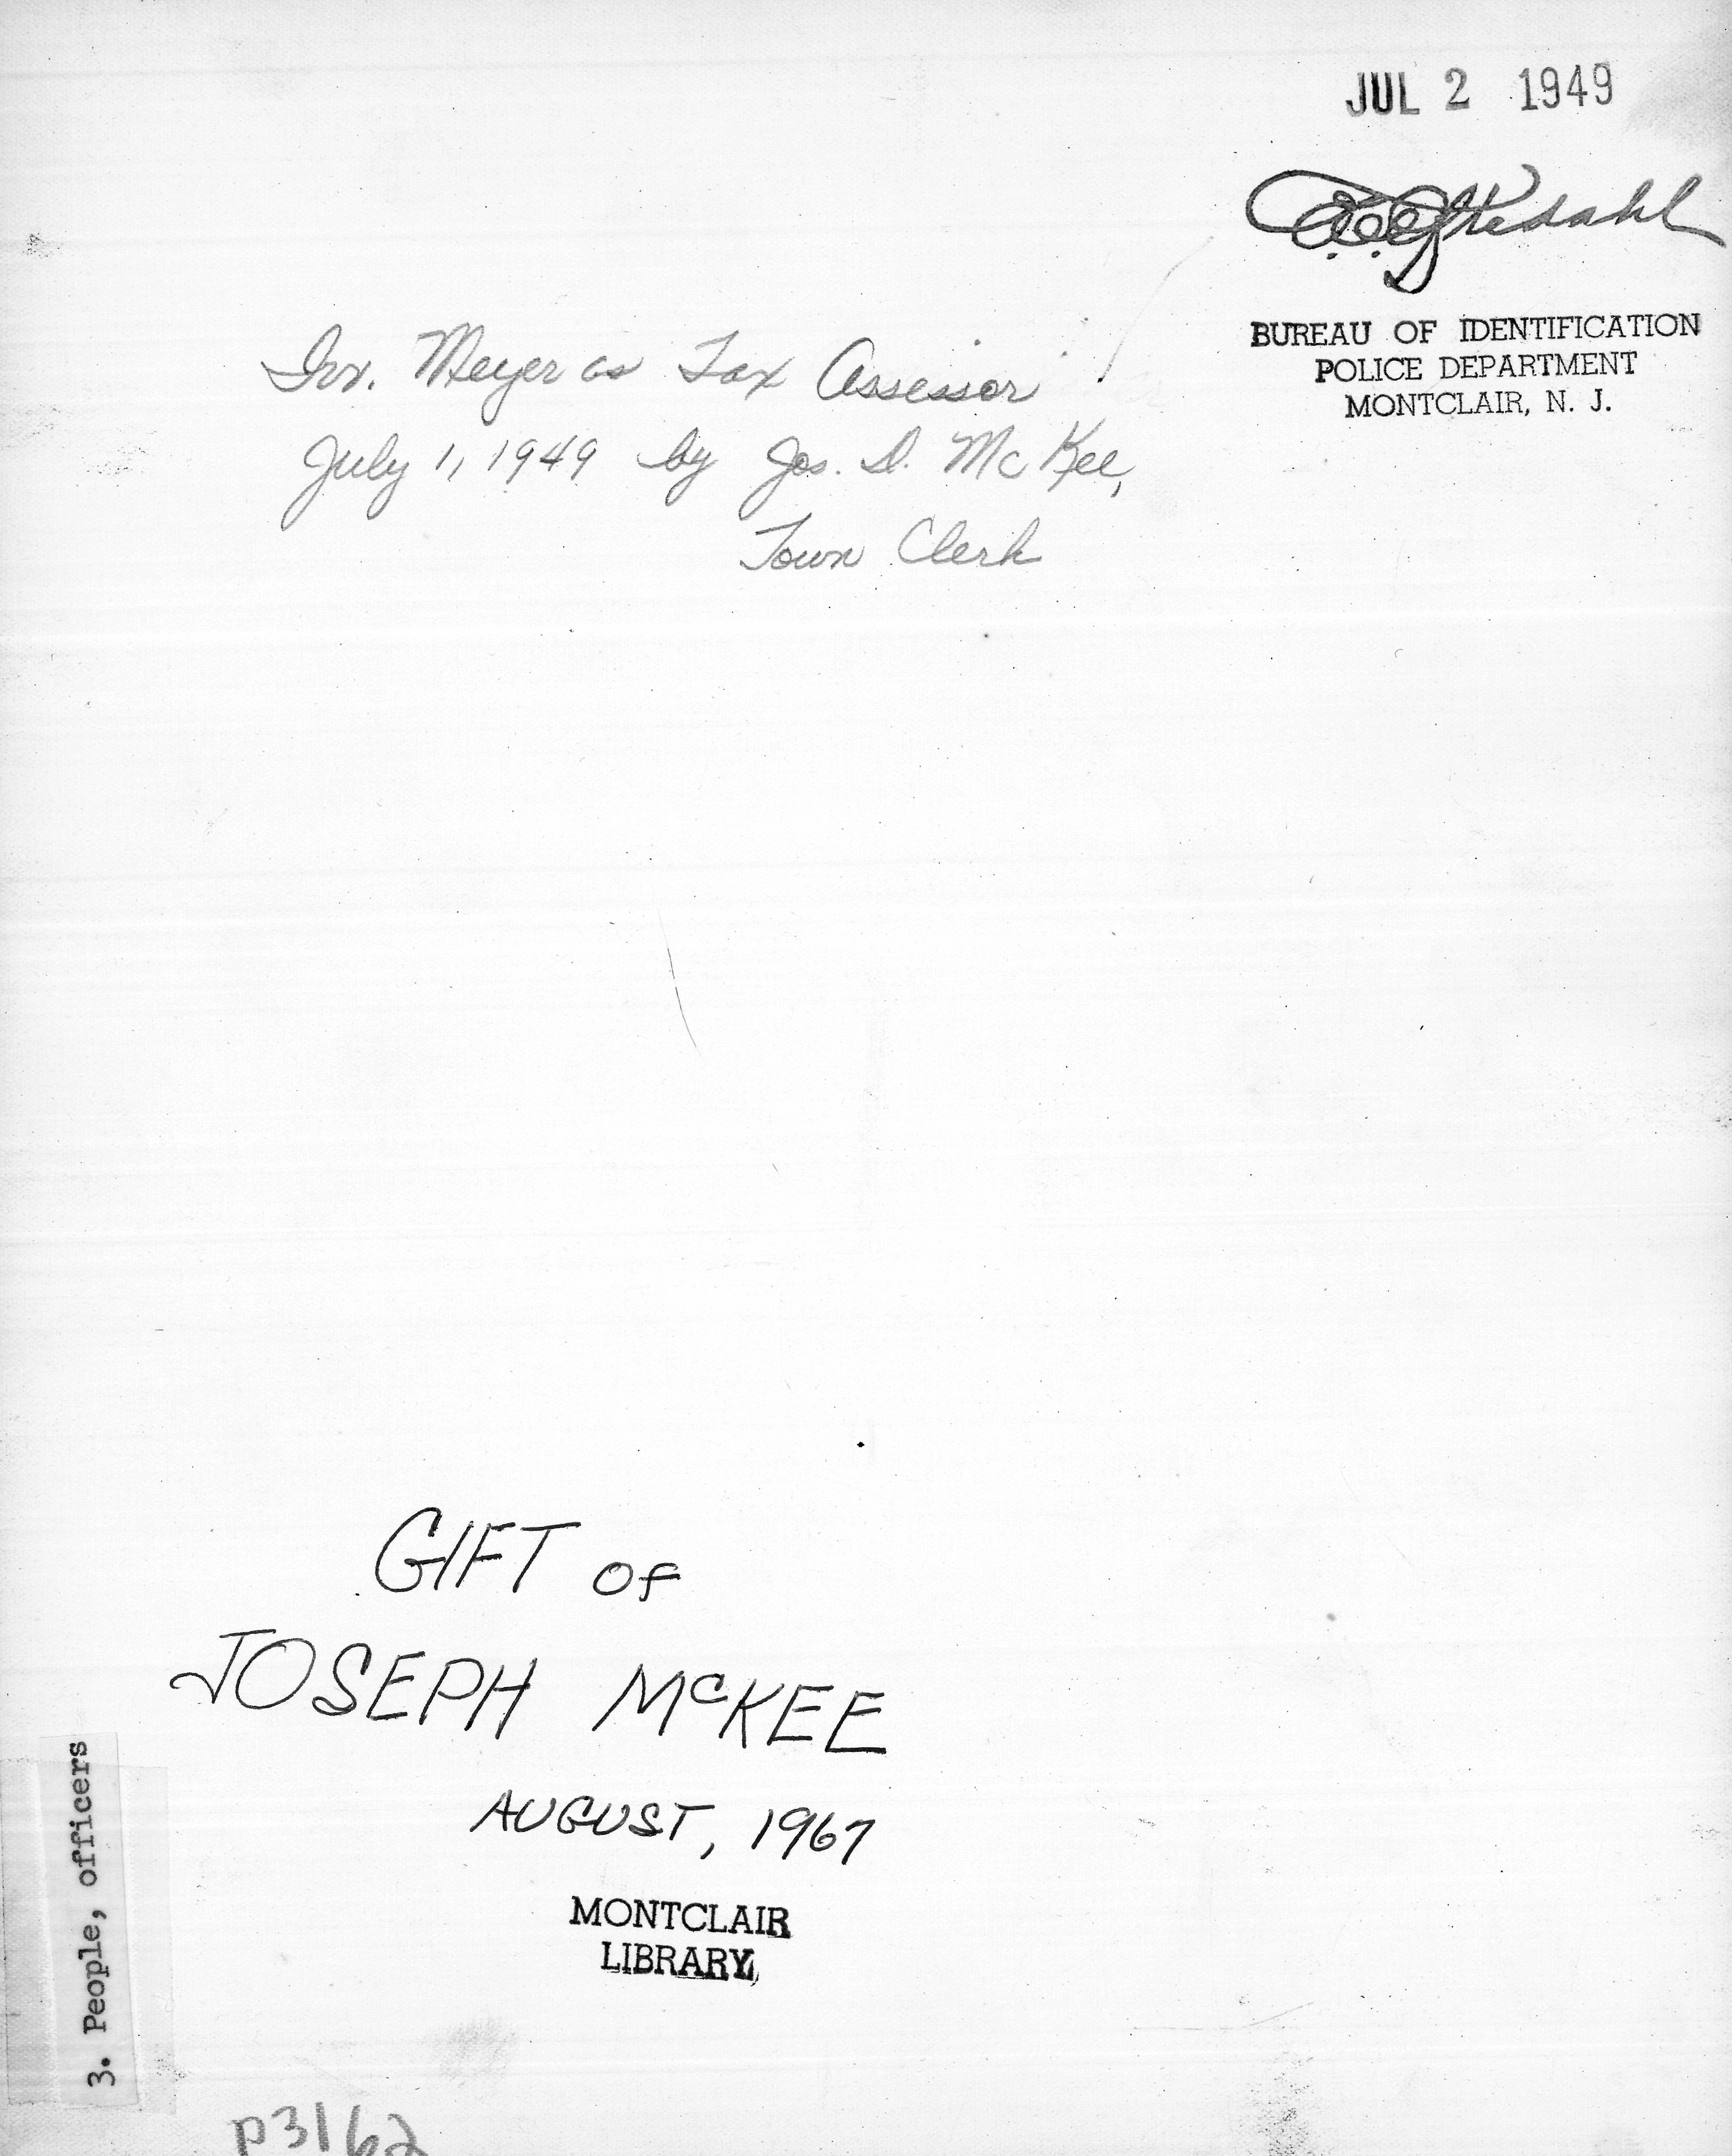 JUL 2 1949
BUREAU OF IDENTIFICATION
POLICE DEPARTMENT
MONTCLAIR, N. J.
Irv. Meyer as Tax Assessor
July 1, 1949 by Jos. D. McKee,
Town Clerk
GIFT of
JOSEPH McKEE
AUGUST, 1967
MONTCLAIR
LIBRARY
3. People, officers
p3162